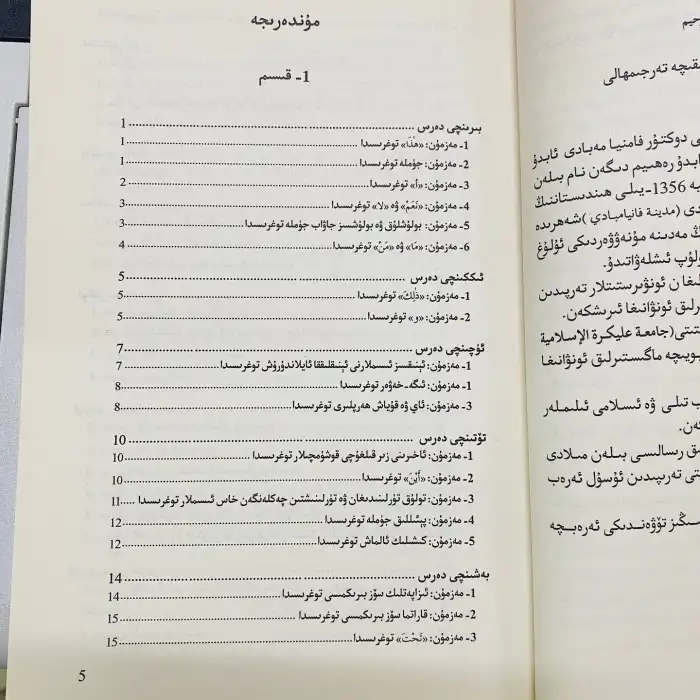 مۇندەرىجە
1- قىسىم
بىرىنچى دەرس ........ 1
1- مەزمۇن: «هٰذَا» توغرىسىدا ........ 1
2- مەزمۇن: جۈملە توغرىسىدا ........ 1
3- مەزمۇن: «أ» توغرىسىدا ........ 2
4- مەزمۇن: «نَعَمْ» ۋە «لا» توغرىسىدا ........ 3
5- مەزمۇن: بولۇشلۇق ۋە بولۇشسىز جاۋاب جۈملە توغرىسىدا ........ 3
6- مەزمۇن: «مَا» ۋە «مَنْ» توغرىسىدا ........ 4
ئىككىنچى دەرس ........ 5
1- مەزمۇن: «ذٰلِكَ» توغرىسىدا ........ 5
2- مەزمۇن: «و» توغرىسىدا ........ 5
ئۈچىنچى دەرس ........ 7
1- مەزمۇن: ئېنىقسىز ئىسىملارنى ئېنىقلىققا ئايلاندۇرۇش توغرىسىدا ........ 7
1- مەزمۇن: ئىگە-خەۋەر توغرىسىدا ........ 8
3- مەزمۇن: ئاي ۋە قۇياش ھەرپلىرى توغرىسىدا ........ 8
تۆتىنچى دەرس ........ 10
1- مەزمۇن: ئاخىرىنى زىر قىلغۇچى قوشۇمچىلار توغرىسىدا ........ 10
2- مەزمۇن: «أَيْنَ» توغرىسىدا ........ 10
3- مەزمۇن: تولۇق تۈرلىنىدىغان ۋە تۈرلىنىشتىن چەكلەنگەن خاس ئىسىملار توغرىسىدا ........ 11
4- مەزمۇن: پېئىللىق جۈملە توغرىسىدا ........ 12
5- مەزمۇن: كىشىلىك ئالماش توغرىسىدا ........ 12
بەشىنچى دەرس ........ 14
1- مەزمۇن: ئىزاپەتلىك سۆز بىرىكمىسى توغرىسىدا ........ 14
2- مەزمۇن: قاراتما سۆز بىرىكمىسى توغرىسىدا ........ 15
3- مەزمۇن: «تَحْتَ» توغرىسىدا ........ 15
5
قىقىچە تەرجىمھالى
ى دوكتۇر فامنىيا مەبادى ئابدۇ
ابدۇ رەھىيم دىگەن نام بىلەن
يە 1356-يىلى ھىندىستاننىڭ
دى (مدينة فانيامبادي) شەھرىدە
ڭ مەدىنە مۇنەۋۋەردىكى ئۇلۇغ
ولۇپ ئىشلەۋاتىدۇ.
لىغان ئونۋېرستىتلار تەرپىدىن
رلىق ئونۋانىغا ئىرىشكەن.
ىتى(جامعة عليكرة الإسلامية
بويىچە ماگىستىرلىق ئونۋانىغا
ب تىلى ۋە ئىسلامى ئىلىملەر
ەن.
ق رىسالىسى بىلەن مىلادى
تى تەرپىدىن ئۇسۇل ئەرەب
ىڭىز تۆۋەندىكى ئەرەبچە